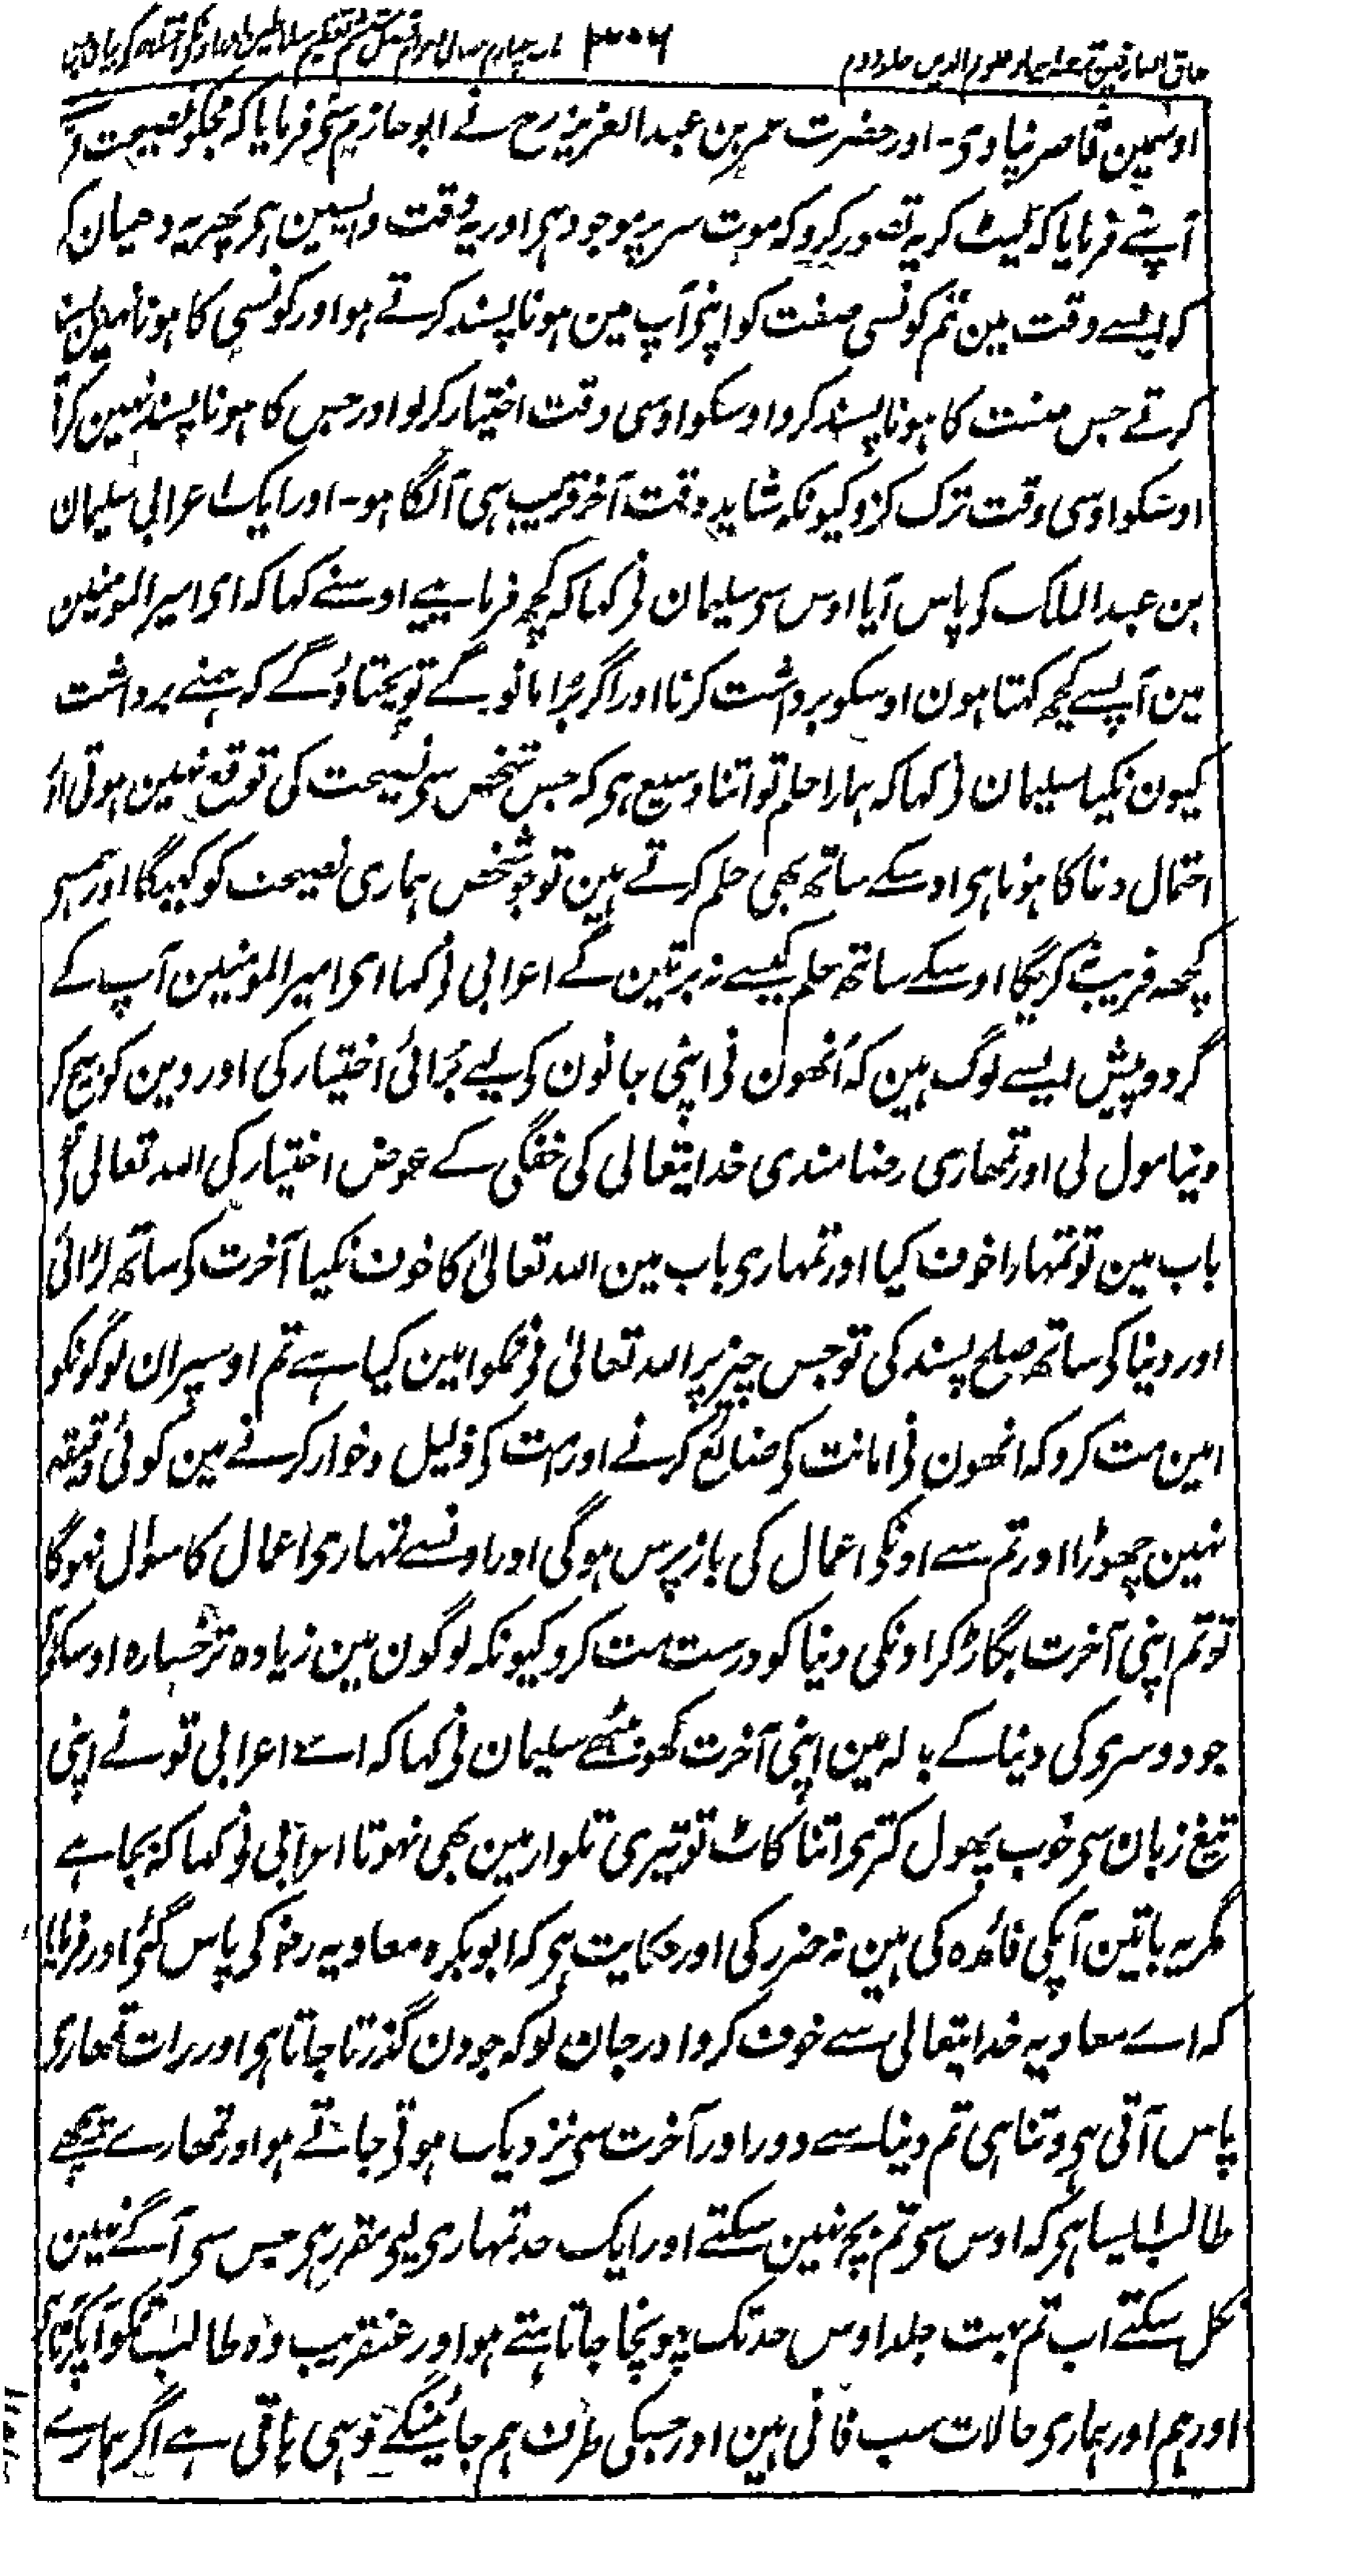 مذاق العارفین ترجمہ احیاء علوم الدین جلد دوم ۳۰۶
اوسمین قاصر نپاوی۔ اور حضرت عمر بن عبدالعزیز رح نے ابو حازم سے فرمایا کہ مجکو نصیحت
آپنے فرمایا کہ لیٹ کر یہ تصور کرو کہ موت سر پر موجود ہی اور یہ وقت واپسین ہی پھر یہ دھیان کر
کہ ایسے وقت مین تم کونسی صفت کو اپنی آپ مین ہونا پسند کرتے ہو اور کونسی کا ہونا نہین پسند
کرتے جس صفت کا ہونا پسند کرو اوسکو اوسی وقت اختیار کر لو اور جس کا ہونا پسند نہین کرتے
اوسکو اوسی وقت ترک کرو کیونکہ شاید وقت آخر قریب ہی آ لگا ہو۔ اور ایک اعرابی سلیمان
بن عبدالملک کی پاس آیا اوس سی سلیمان نی کہا کہ کچھ فرمایئے اوسنے کہا کہ ای امیر المومنین
مین آپ سے کچھ کہتا ہون اوسکو برداشت کرنا اور اگر برا مانو گے تو پچتاؤگے کہ ہمنے برداشت
کیون نکیا سلیمان نی کہا کہ ہمارا حلم تو اتنا وسیع ہی کہ جس شخص سی نصیحت کی توقع نہین ہوتی اور
احتمال دغا کا ہوتا ہی اوسکے ساتھ بھی حلم کرتے ہین تو جو شخص ہماری نصیحت کو کہیگا اور ہمسی
کچھ فریب نکریگا اوسکے ساتھ حلم کیسے نہ برتین گے اعرابی نی کہا ای امیر المومنین آپ کے
گرد و پیش ایسے لوگ ہین کہ انھون نی اپنی جانون کی لیے برائی اختیار کی اور دین کو بیچ کر
دنیا مول لی اور تمھاری رضامندی خدایتعالی کی خفگی کے عوض اختیار کی اللہ تعالی کی
باب مین تو تمہارا خوف کیا اور تمہاری باب مین اللہ تعالیٰ کا خوف نکیا آخرت کی ساتھ لڑائی
اور دنیا کی ساتھ صلح پسند کی تو جس چیز پر اللہ تعالیٰ نی تمکو امین کیا ہے تم اوسپر ان لوگونکو
امین مت کرو کہ انھون نی امانت کی ضائع کرنے اور امت کی ذلیل و خوار کرنے مین کوئی دقیقہ
نہین چھوڑا اور تم سے اونکی اعمال کی باز پرس ہوگی اور اونسے تمہاری اعمال کا سوال نہوگا
تو تم اپنی آخرت بگاڑ کر اونکی دنیا کو درست مت کرو کیونکہ لوگون مین زیادہ تر خسارہ اوسکو
جو دوسری کی دنیا کے بدلہ مین اپنی آخرت کھو بیٹھے سلیمان نی کہا کہ اے اعرابی تو نے اپنی
تیغ زبان سی خوب پھول کتری اتنا کاٹ تو تیری تلوار مین بھی نہوتا اعرابی نی کہا کہ بجا ہے
مگر یہ باتین آپکی فائدہ کی ہین نہ ضرر کی اور حکایت ہی کہ ابو بکرہ معاویہ رض کی پاس گئی اور فرمایا
کہ اے معاویہ خدایتعالی سے خوف کرو اور جان لو کہ جو دن گذرتا جاتا ہی اور رات تمھاری
پاس آتی ہی وتنا ہی تم دنیا سے دور اور آخرت سی نزدیک ہوتی جاتے ہو اور تمھارے پیچھے
طالب ایسا ہی کہ اوس سی تم بچ نہین سکتے اور ایک حد تمہاری لیی مقرر ہی جس سی آگے نہین
نکل سکتے اب تم بہت جلد اوس حد تک پہونچا چاہتے ہو اور عنقریب وہ طالب تمکو آپکڑتا
اور ہم اور ہماری حالات سب فانی ہین اور جسکی طرف ہم جاینگے وہی باقی ہے اگر ہمارے